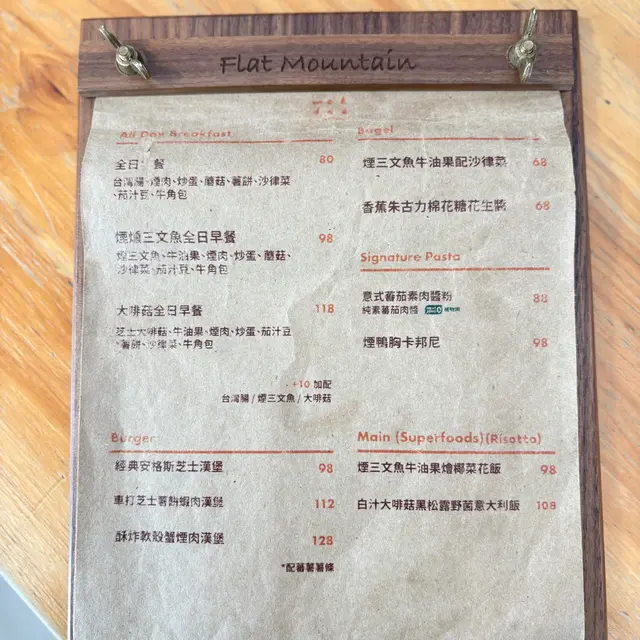 Flat Mountain
All Day Breakfast
全日 餐 80
台灣腸、煙肉、炒蛋、蘑菇、薯餅、沙律菜
、茄汁豆、牛角包
煙燻三文魚全日早餐 98
煙三文魚、牛油果、煙肉、炒蛋、蘑菇、
沙律菜、茄汁豆、牛角包
大啡菇全日早餐 118
芝士大啡菇、牛油果、煙肉、炒蛋、茄汁豆
、薯餅、沙律菜、牛角包
+10 加配
台灣腸 / 煙三文魚 / 大啡菇
Burger
經典安格斯芝士漢堡 98
車打芝士薯餅蝦肉漢堡 112
酥炸軟殼蟹煙肉漢堡 128
*配蕃薯薯條
Bagel
煙三文魚牛油果配沙律菜 68
香蕉朱古力棉花糖花生醬 68
Signature Pasta
意式蕃茄素肉醬粉 88
純素蕃茄肉醬
煙鴨胸卡邦尼 98
Main (Superfoods)(Risotto)
煙三文魚牛油果燴椰菜花飯 98
白汁大啡菇黑松露野菌意大利飯 108